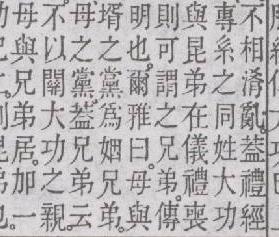 不相淆亂蓋禮經
專系之同姓大功
與昆弟在儀禮喪
則可謂之兄弟傳
明也爾雅曰母與
壻之黨為姻兄弟
母之黨蓋兄弟云
不以闢大功之親
母與兄弟居加一